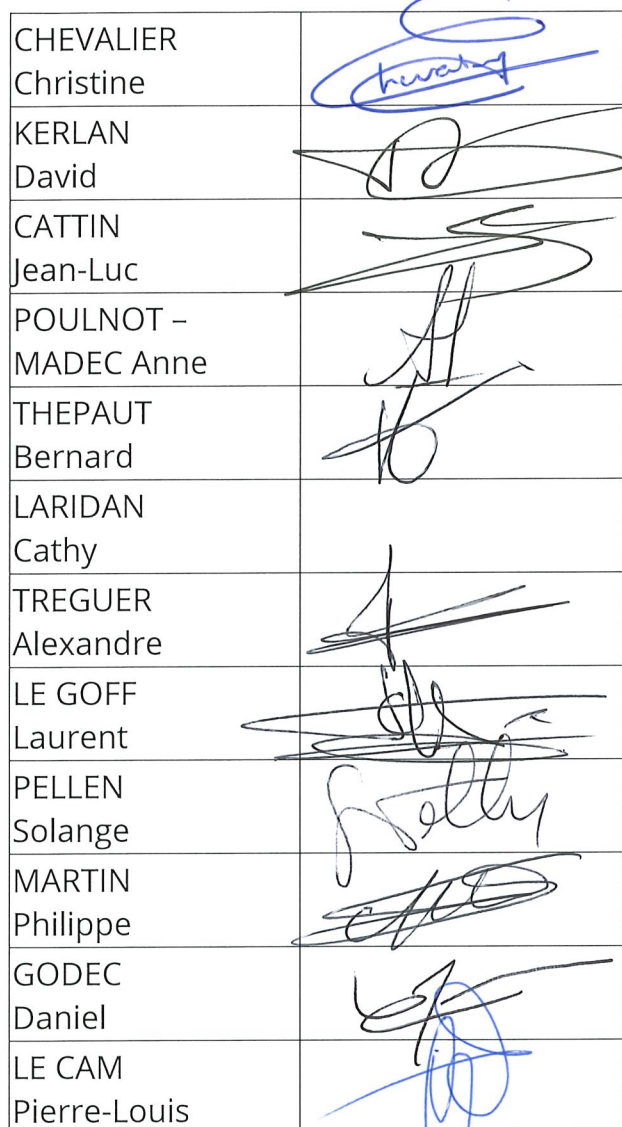 CHEVALIER
Christine
KERLAN
David
CATTIN
Jean-Luc
POULNOT –
MADEC Anne
THEPAUT
Bernard
LARIDAN
Cathy
TREGUER
Alexandre
LE GOFF
Laurent
PELLEN
Solange
MARTIN
Philippe
GODEC
Daniel
LE CAM
Pierre-Louis